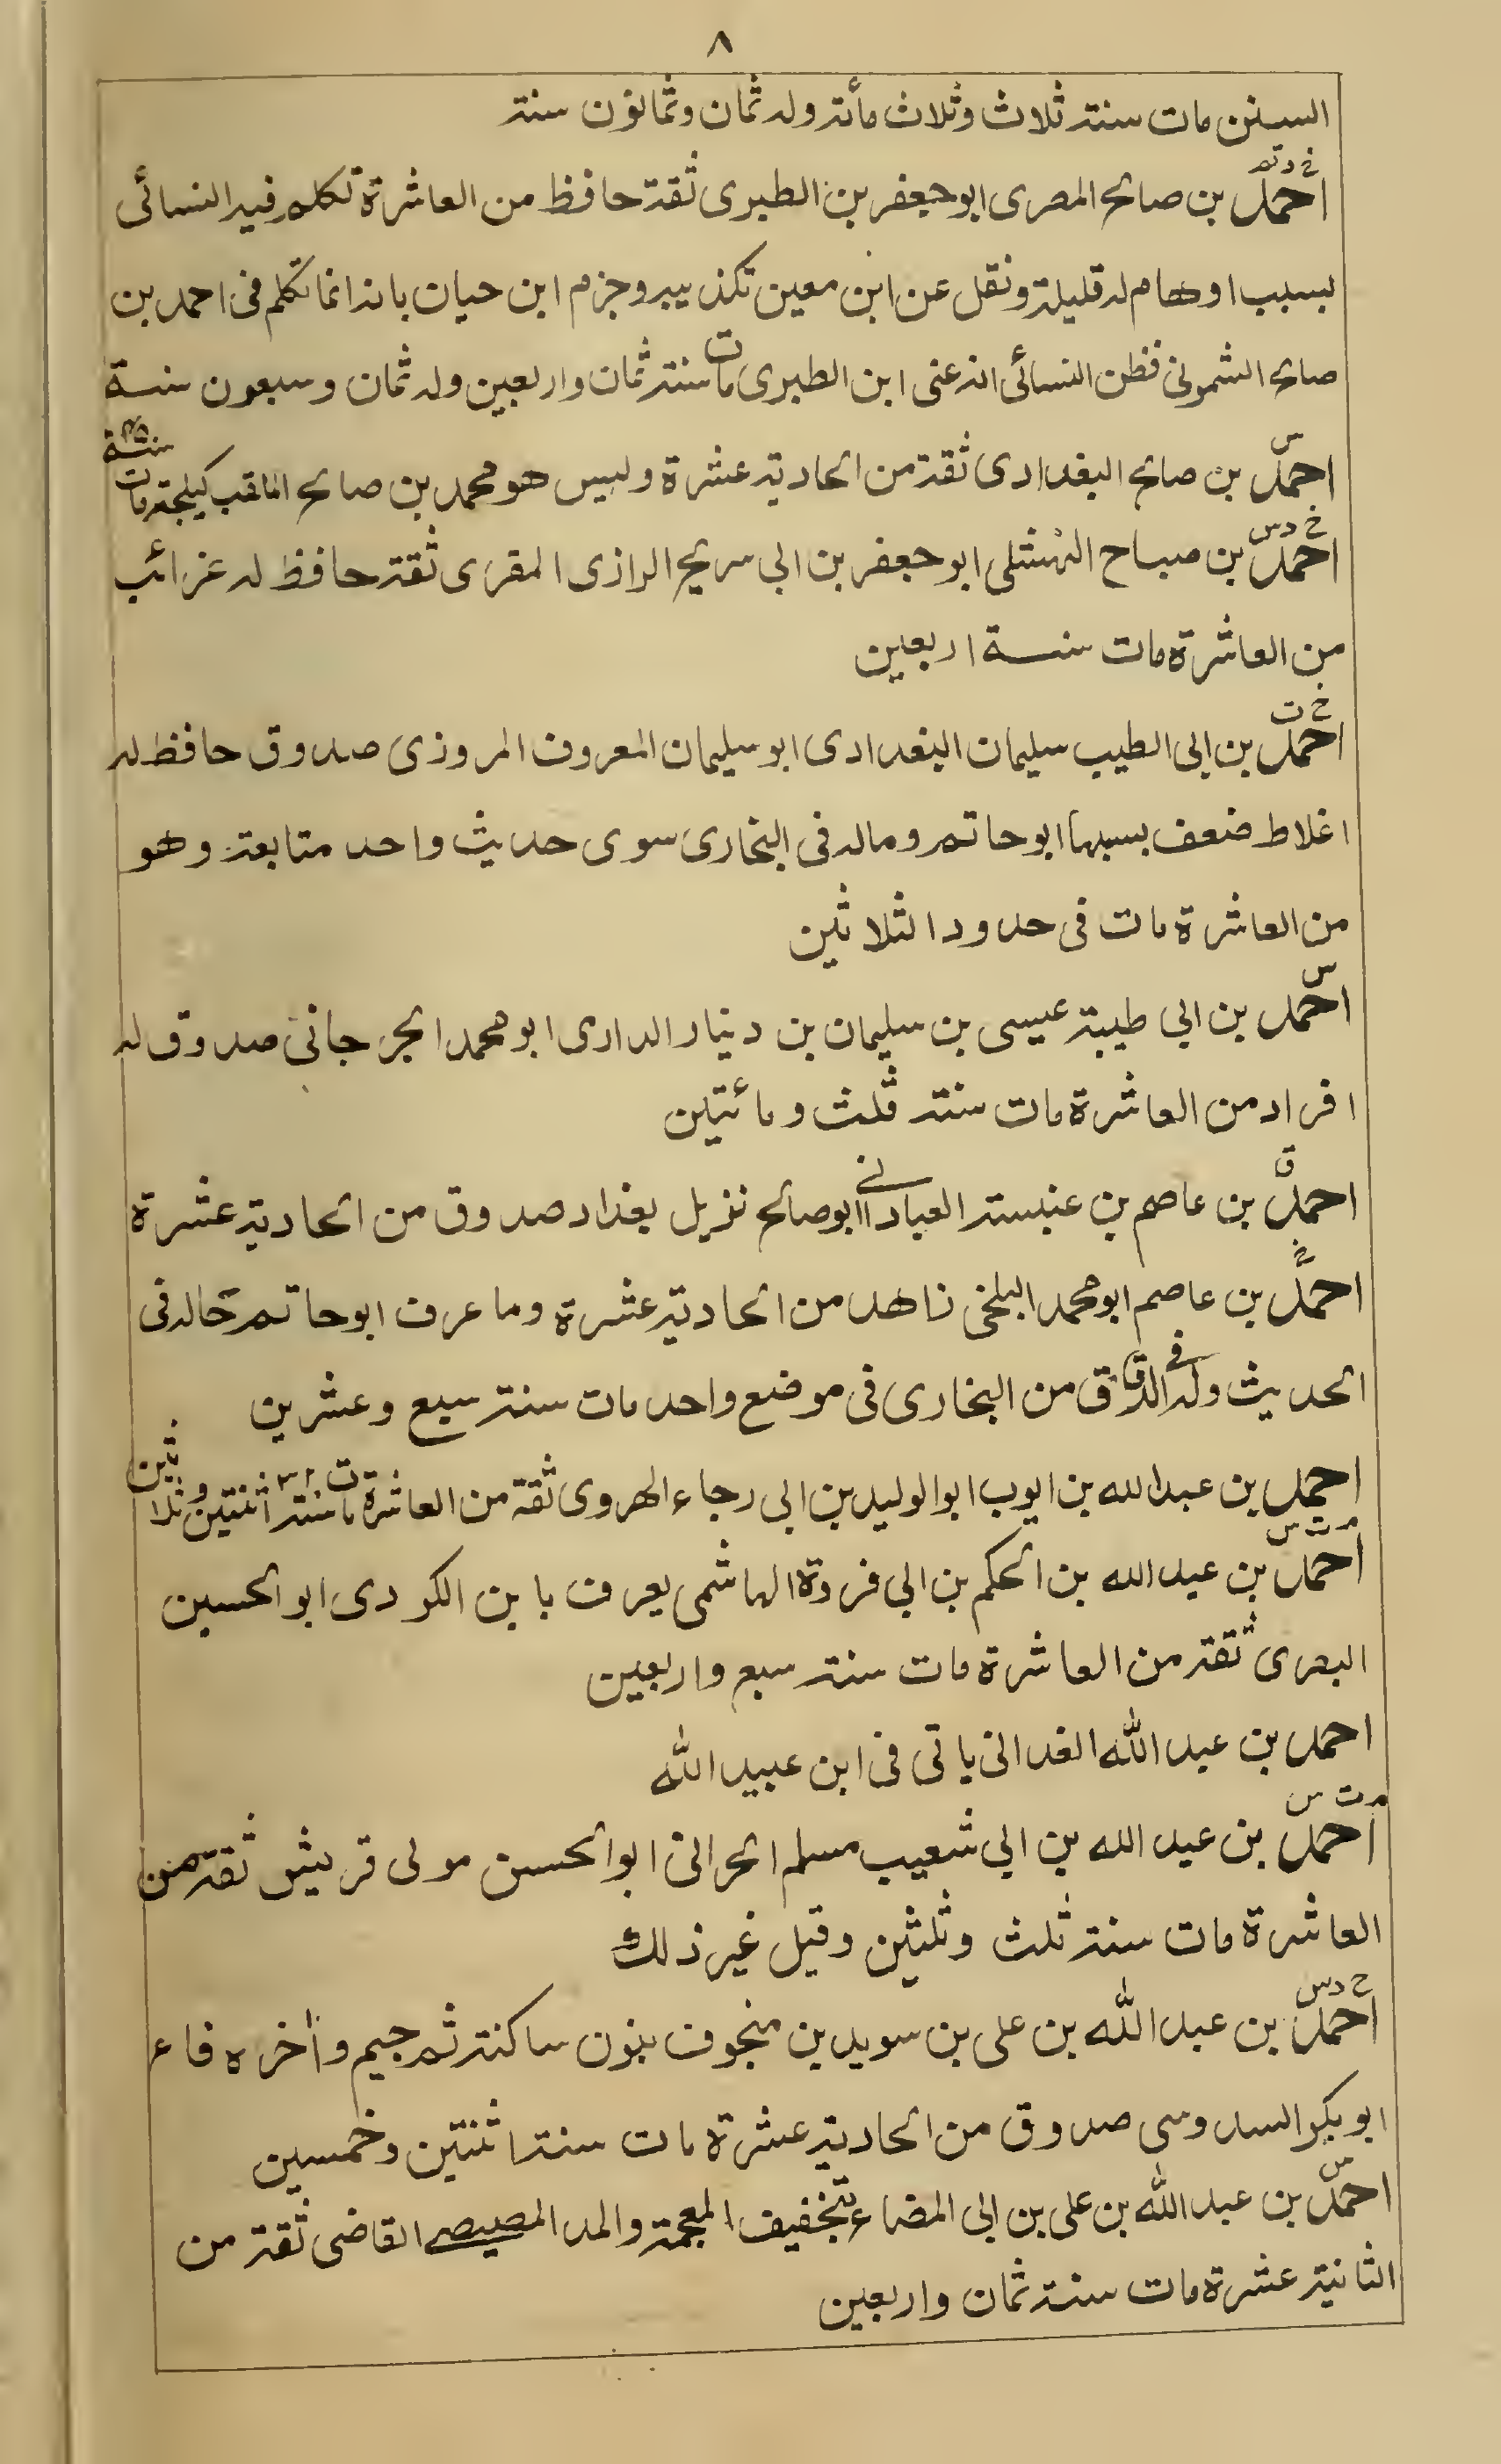 ٨
السنن مات سنة ثلاث وثلاث مأئة وله ثمان وثمانون سنة
خ د تم
احمد بن صالح المصرى ابو جعفر بن الطبرى ثقة حافظ من العاشرة تكلم فيه النسائى
بسبب اوهام له قليلة ونقل عن ابن معين تكذيبه وجزم ابن حبان بانه انما تكلم فى احمد بن
صالح الشمونى فظن النسائى انه عنى ابن الطبرى مات سنة ثمان واربعين وله ثمان وسبعون سنة
س
احمد بن صالح البغدادى ثقة من الحادية عشرة وليس هو محمد بن صالح الملقب كيلجة مات سنة
خ د س
احمد بن صباح النهشلى ابو جعفر بن ابى سريج الرازى المقرى ثقة حافظ له غرائب
من العاشرة مات سنة اربعين
خ ت
احمد بن ابى الطيب سليمان البغدادى ابو سليمان المعروف المروزى صدوق حافظ له
اغلاط ضعف بسببها ابو حاتم وماله فى البخارى سوى حديث واحد متابعة وهو
من العاشرة مات فى حدود الثلاثين
س
احمد بن ابى طيبة عيسى بن سليمان بن دينار الدارى ابو محمد الجرجانى صدوق له
افراد من العاشرة مات سنة ثلث ومائتين
ق
احمد بن عاصم بن عنبسة العبادانى ابو صالح نزيل بغداد صدوق من الحادية عشرة
بخ
احمد بن عاصم ابو محمد البلخى زاهد من الحادية عشرة وما عرف ابو حاتم حاله فى
الحديث وله فى الرقاق من البخارى فى موضع واحد مات سنة سبع وعشرين
احمد بن عبد الله بن ايوب ابو الوليد بن ابى رجاء الهروى ثقة من العاشرة مات سنة اثنتين وثلاثين
م ت س
احمد بن عبد الله بن الحكم بن ابى فروة الهاشمى يعرف بابن الكردى ابو الحسين
البصرى ثقة من العاشرة مات سنة سبع واربعين
احمد بن عبد الله الغدانى ياتى فى ابن عبيد الله
م ت س
احمد بن عبد الله بن ابى شعيب مسلم الحرانى ابو الحسن مولى قريش ثقة من
العاشرة مات سنة ثلث وثلثين وقيل غير ذلك
خ د س
احمد بن عبد الله بن على بن سويد بن منجوف بنون ساكنة ثم جيم واخره فاء
ابو بكر السدوسى صدوق من الحادية عشرة مات سنة اثنتين وخمسين
س
احمد بن عبد الله بن على بن ابى المضاء بتخفيف المعجمة والمد المصيصى القاضى ثقة من
الثانية عشرة مات سنة ثمان واربعين